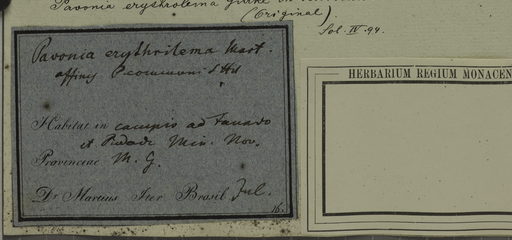 Pavonia erythrolema Gürke
(Original)
Sol. IV. 94.
Pavonia erythrilema Mart.
affinis P. communi St Hil
Habitat in campis ad Fanado
et Piedade Min. Nov.
Provinciae M. G.
Dr Martius Iter Brasil Jul.
16.
HERBARIUM REGIUM MONACEN